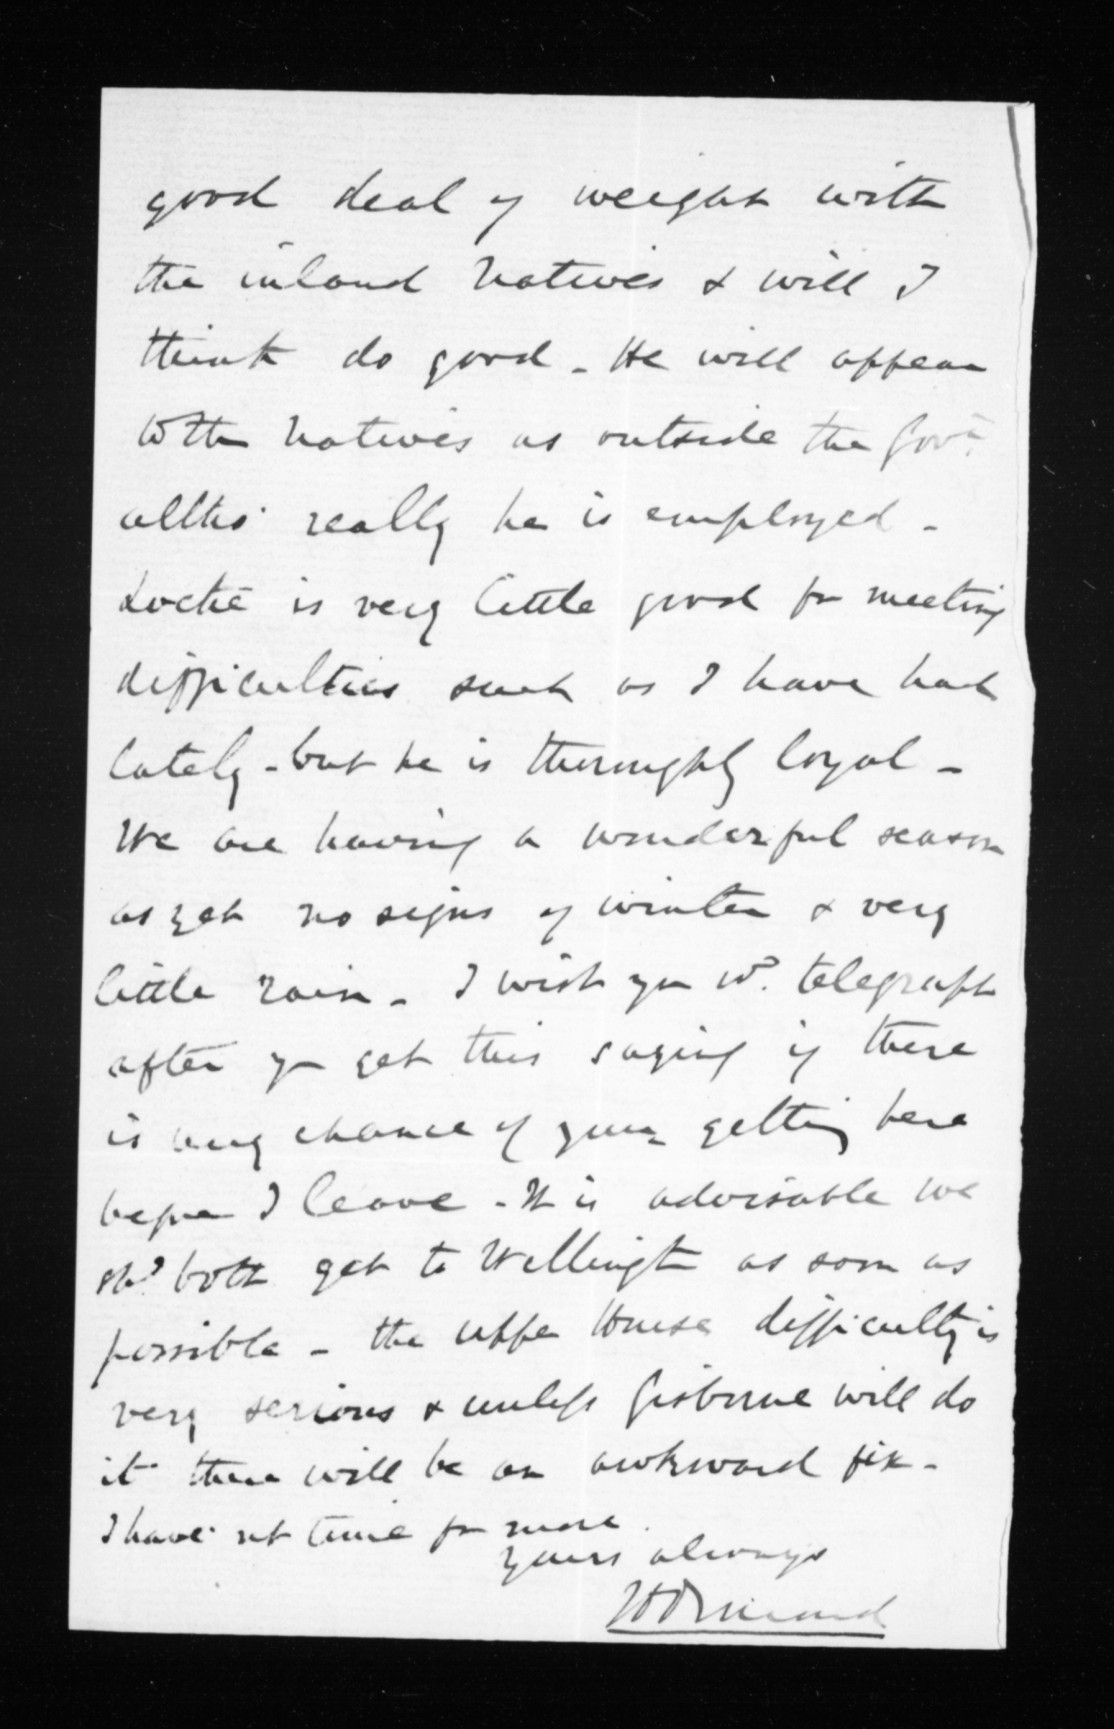 good deal of weight with
the inland Natives & will I
think do good - He will appear
to the Natives as outside the Govt
altho' really he is employed -
Locke is very little good for meeting
difficulties such as I have had
lately - but he is thoroughly loyal -
We are having a wonderful season
as yet no signs of winter & very
little rain - I wish you wd. telegraph
after you get this saying if there
is any chance of your getting here
before I leave - It is advisable we
shd. both get to Wellington as soon as
possible - the Upper House difficulty is
very serious & unless Gisborne will do
it there will be an awkward fix -
I have not time for more.
Yours always
JDOrmond